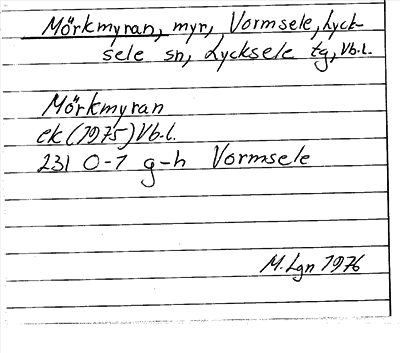 Mörkmyran, myr, Vormsele, Lyck-
sele sn, Lycksele tg, Vb.l.
Mörkmyran
ek (1975) Vb.l.
231 0-1 g-h Vormsele
M. Lgn 1976